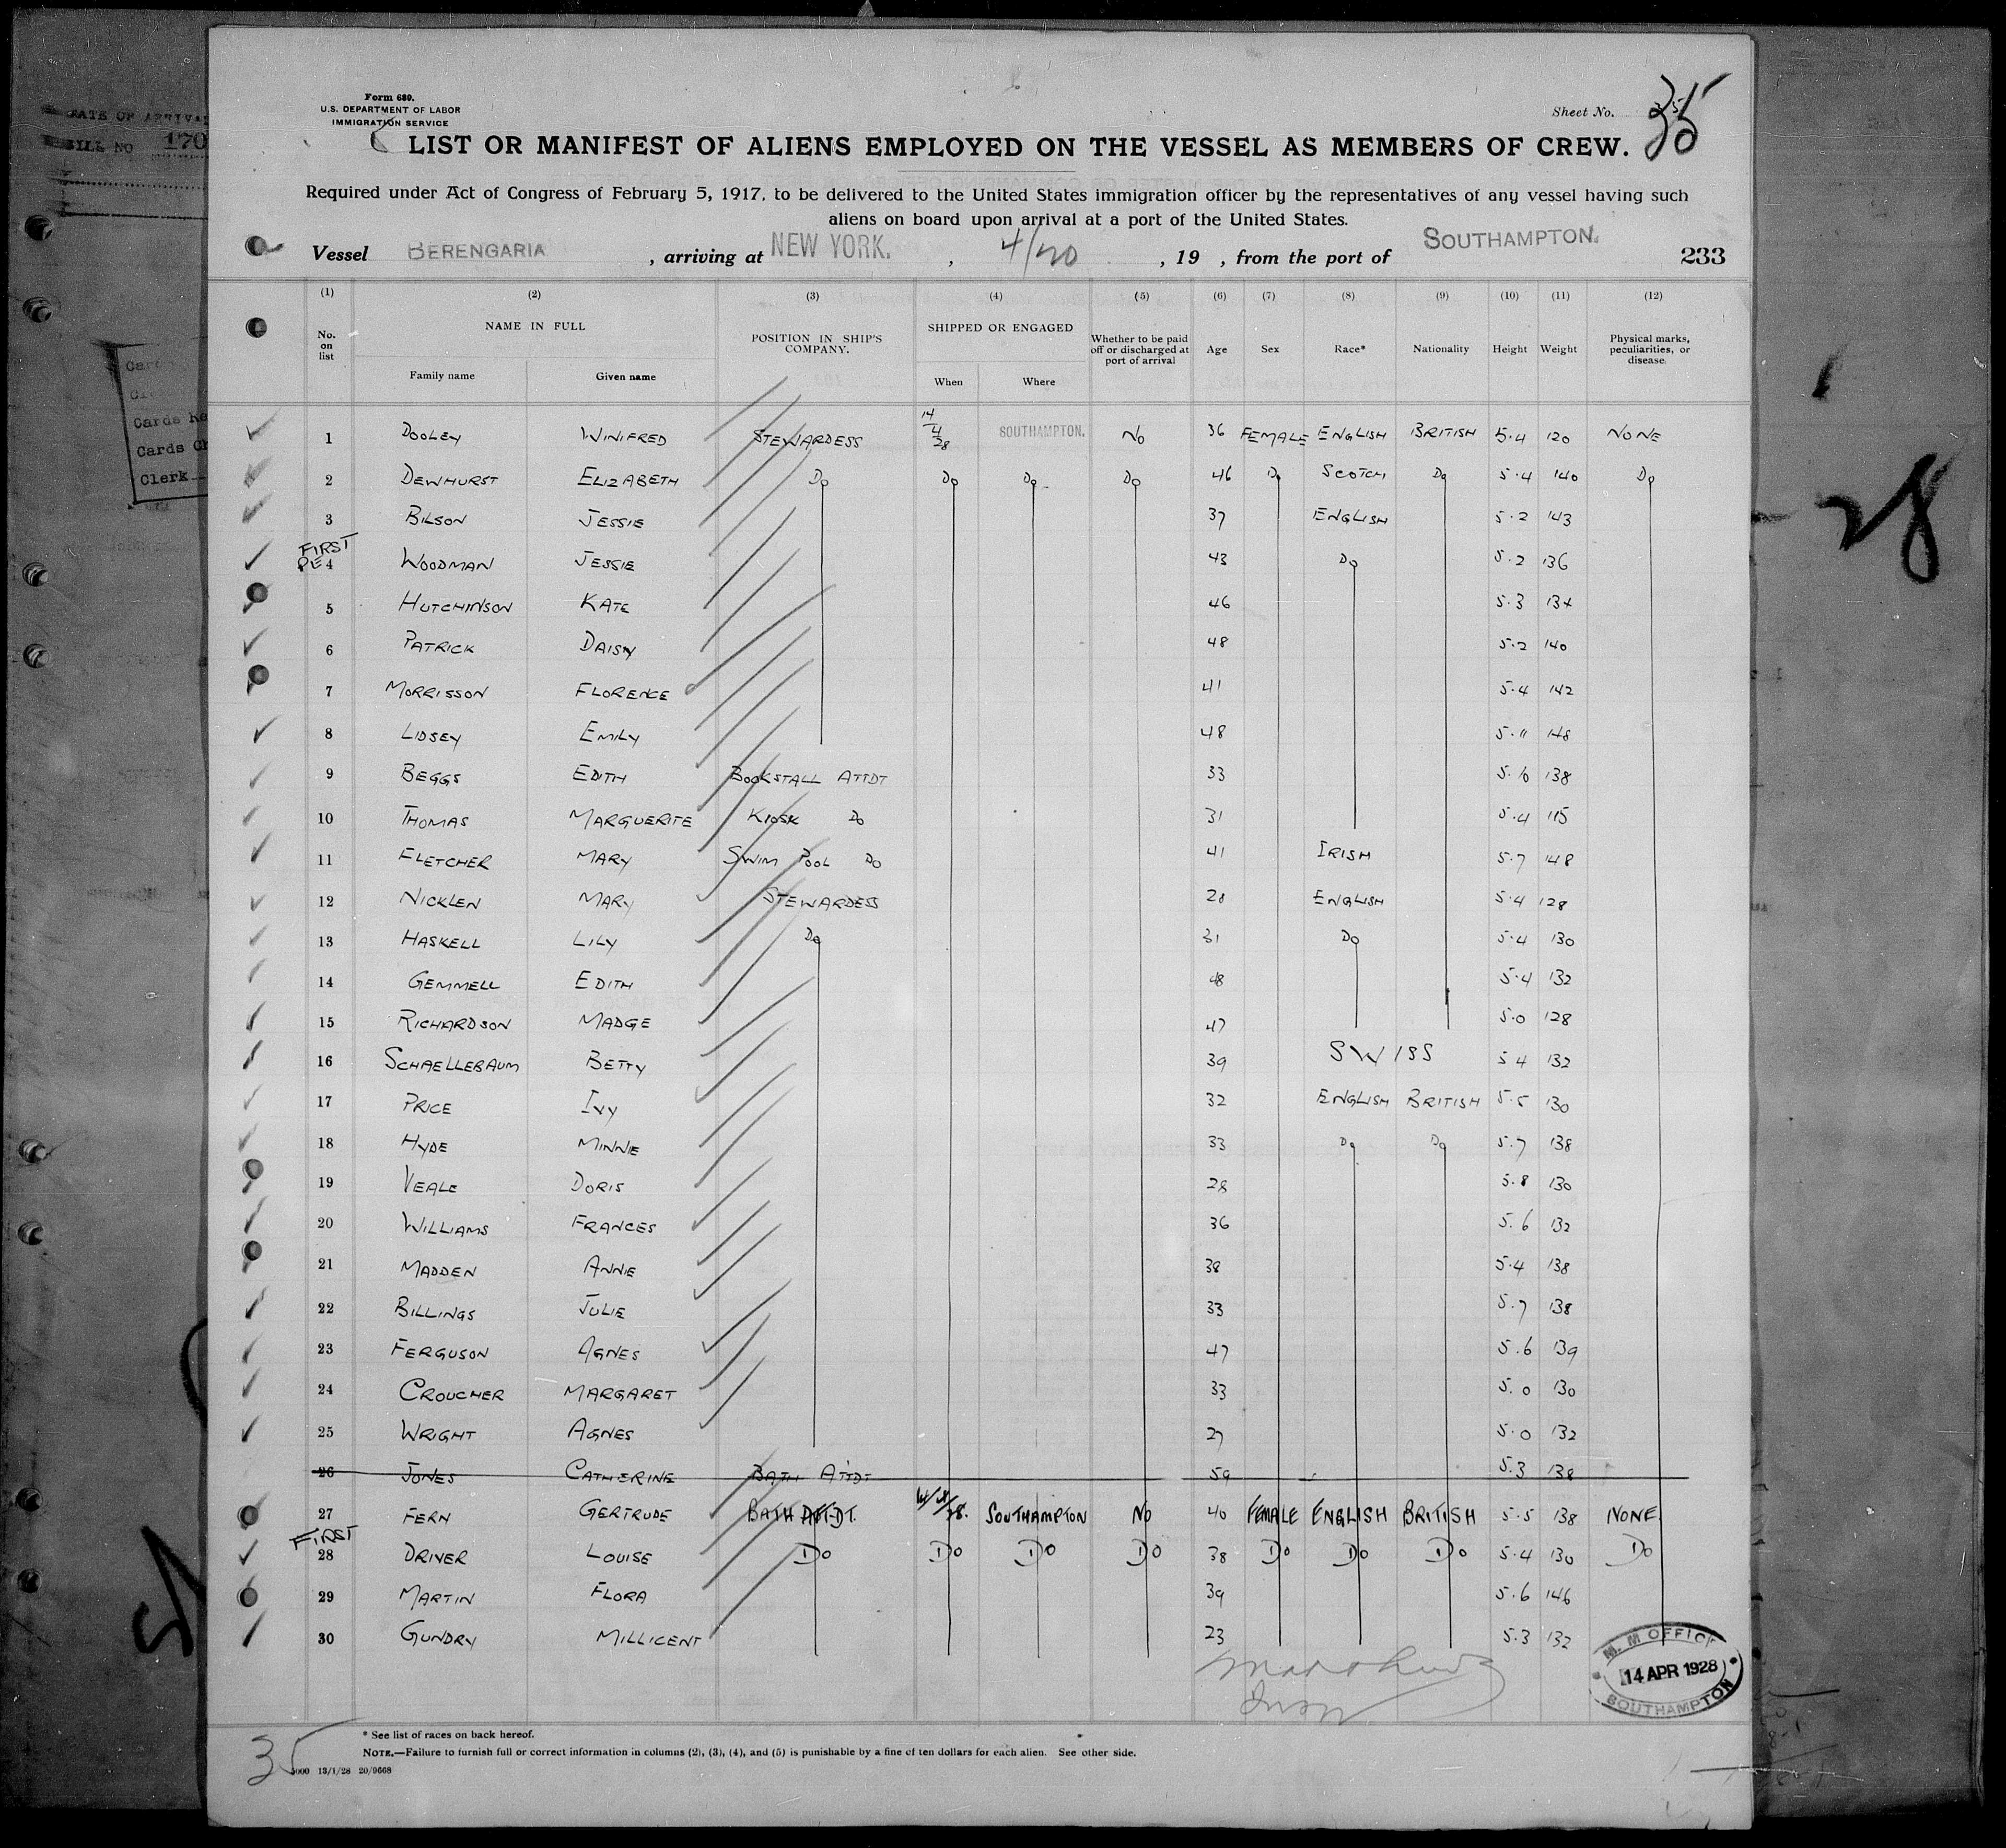 Form 680.
U.S. DEPARTMENT OF LABOR
IMMIGRATION SERVICE
Sheet No. 35
LIST OR MANIFEST OF ALIENS EMPLOYED ON THE VESSEL AS MEMBERS OF CREW.
Required under Act of Congress of February 5, 1917, to be delivered to the United States immigration officer by the representatives of any vessel having such
aliens on board upon arrival at a port of the United States.
Vessel BERENGARIA , arriving at NEW YORK. , 4/20 , 19 , from the port of SOUTHAMPTON. 233
(1) (2) (3) (4) (5) (6) (7) (8) (9) (10) (11) (12)
No. on list NAME IN FULL Family name Given name POSITION IN SHIP'S COMPANY. SHIPPED OR ENGAGED When Where Whether to be paid off or discharged at port of arrival Age Sex Race* Nationality Height Weight Physical marks, peculiarities, or disease.
1 DOOLEY WINIFRED STEWARDESS 14/4/28 SOUTHAMPTON. NO 36 FEMALE ENGLISH BRITISH 5.4 120 NONE
2 DEWHURST ELIZABETH Do Do Do Do 46 Do SCOTCH Do 5.4 140 Do
3 BILSON JESSIE 37 ENGLISH 5.2 143
FIRST
4 WOODMAN JESSIE 43 Do 5.2 136
5 HUTCHINSON KATE 46 5.3 134
6 PATRICK DAISY 48 5.2 140
7 MORRISSON FLORENCE 41 5.4 142
8 LIDSEY EMILY 48 5.11 148
9 BEGGS EDITH BOOKSTALL ATTDT 33 138
10 THOMAS MARGUERITE KIOSK DO 31 5.4 115
11 FLETCHER MARY SWIM POOL DO 41 IRISH 5.7 148
12 NICKLEN MARY STEWARDESS 28 ENGLISH 5.4 128
13 HASKELL LILY Do 31 Do 5.4 130
14 GEMMELL EDITH 48 5.4 132
15 RICHARDSON MADGE 47 5.0 128
16 SCHAELLEBAUM BETTY 39 SWISS 5 4 132
17 PRICE IVY 32 ENGLISH BRITISH 5.5 130
18 HYDE MINNIE 33 Do Do 5.7 138
19 VEALE DORIS 28 5.8 130
20 WILLIAMS FRANCES 36 5.6 132
21 MADDEN ANNIE 38 5.4 138
22 BILLINGS JULIE 33 5.7 138
23 FERGUSON AGNES 47 5.6 139
24 CROUCHER MARGARET 33 5.0 130
25 WRIGHT AGNES 27 5.0 132
26 JONES CATHERINE BATH ATTDT 59 5.3 138
27 FERN GERTRUDE BATH ATTDT. 14/4/28. SOUTHAMPTON NO 40 FEMALE ENGLISH BRITISH 5.5 138 NONE.
FIRST
28 DRIVER LOUISE Do Do Do Do 38 Do Do Do 5.4 130 Do
29 MARTIN FLORA 39 5.6 146
30 GUNDRY MILLICENT 23 5.3 132
M. M OFFICE
14 APR 1928
SOUTHAMPTON
* See list of races on back hereof.
NOTE.—Failure to furnish full or correct information in columns (2), (3), (4), and (5) is punishable by a fine of ten dollars for each alien. See other side.
35
13/1/28 20/9668
BILL NO 170
Cards
Cards
Clerk
28